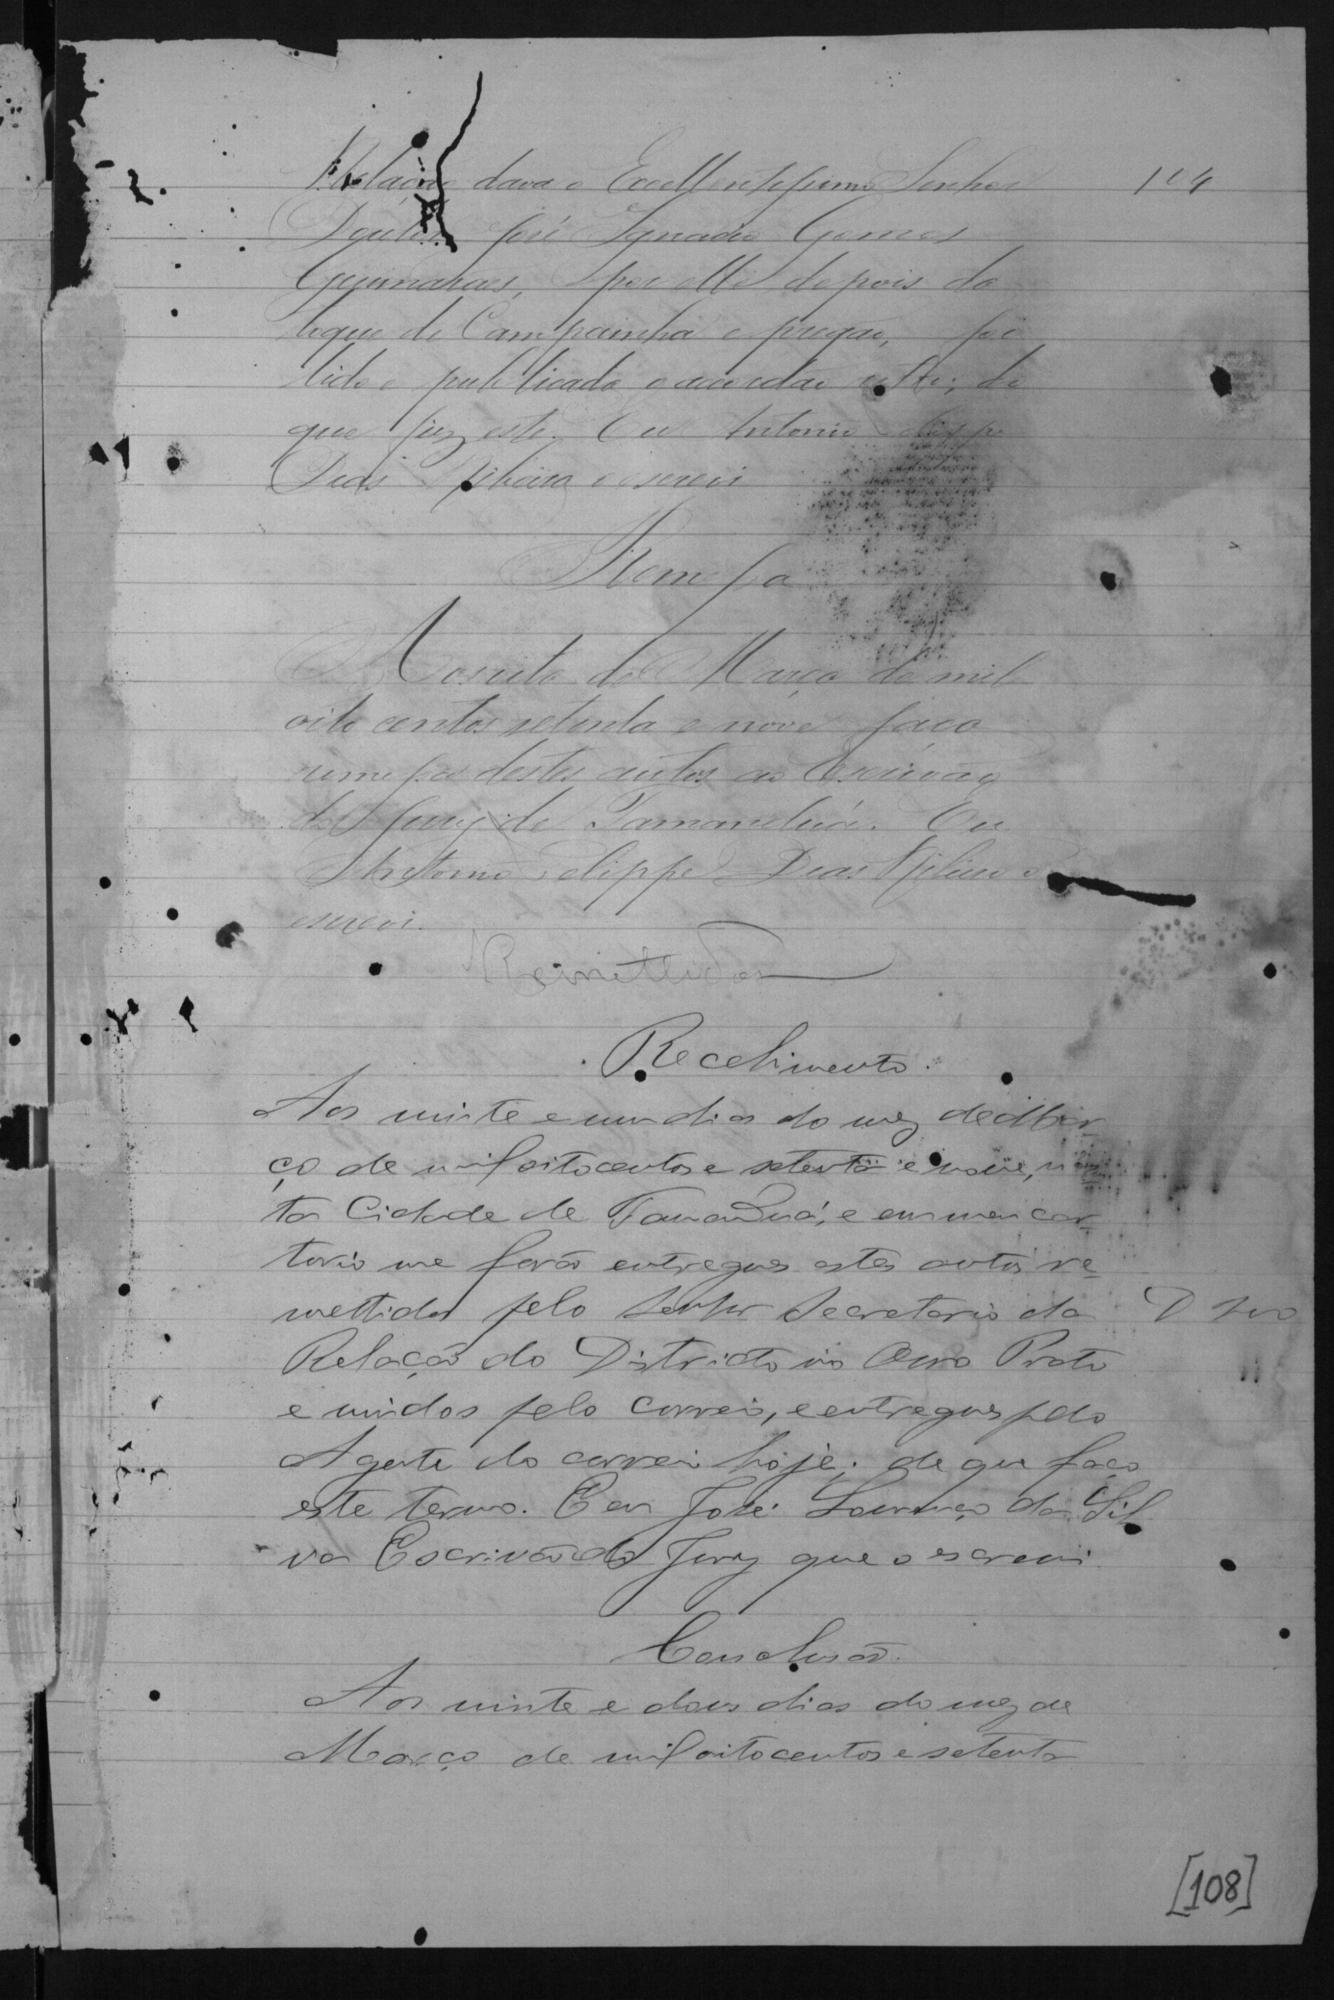 Relação dava o Excellentissimo Senhor 104
Doutor José Ignacio Gomes
Guimaraes, por elle depois do
toque de Campainha e pregão, foi
lido e publicado o acordão retro; do
que fiz este. Eu Antonio Felippe
Dias Ribeiro o escrevi
Remessa
A oito de Março de mil
oito centos setenta e nove faço
remessa destes autos ao Escrivão
do Jury de Tamanduá. Eu
Antonio Felippe Dias Ribeiro o
escrevi.
Remettidos
Recebimento.
Aos vinte e um dias do mez de Mar-
ço de mil oitocentos e setenta e nove, nes
ta Cidade de Tamanduá, e em meu car-
torio me forão entregues estes autos re-
mettidos pelo Senhor Secretario da
Relação do Districto no Ouro Preto
e vindos pelo correio, e entregues pelo
Agente do correio hoje; de que faço
este termo. Eu José Lourenço da Sil
va Escrivão do Jury que o escrevi.
Conclusão.
Aos vinte e dous dias do mez de
Março de mil oitocentos e setenta
[108]